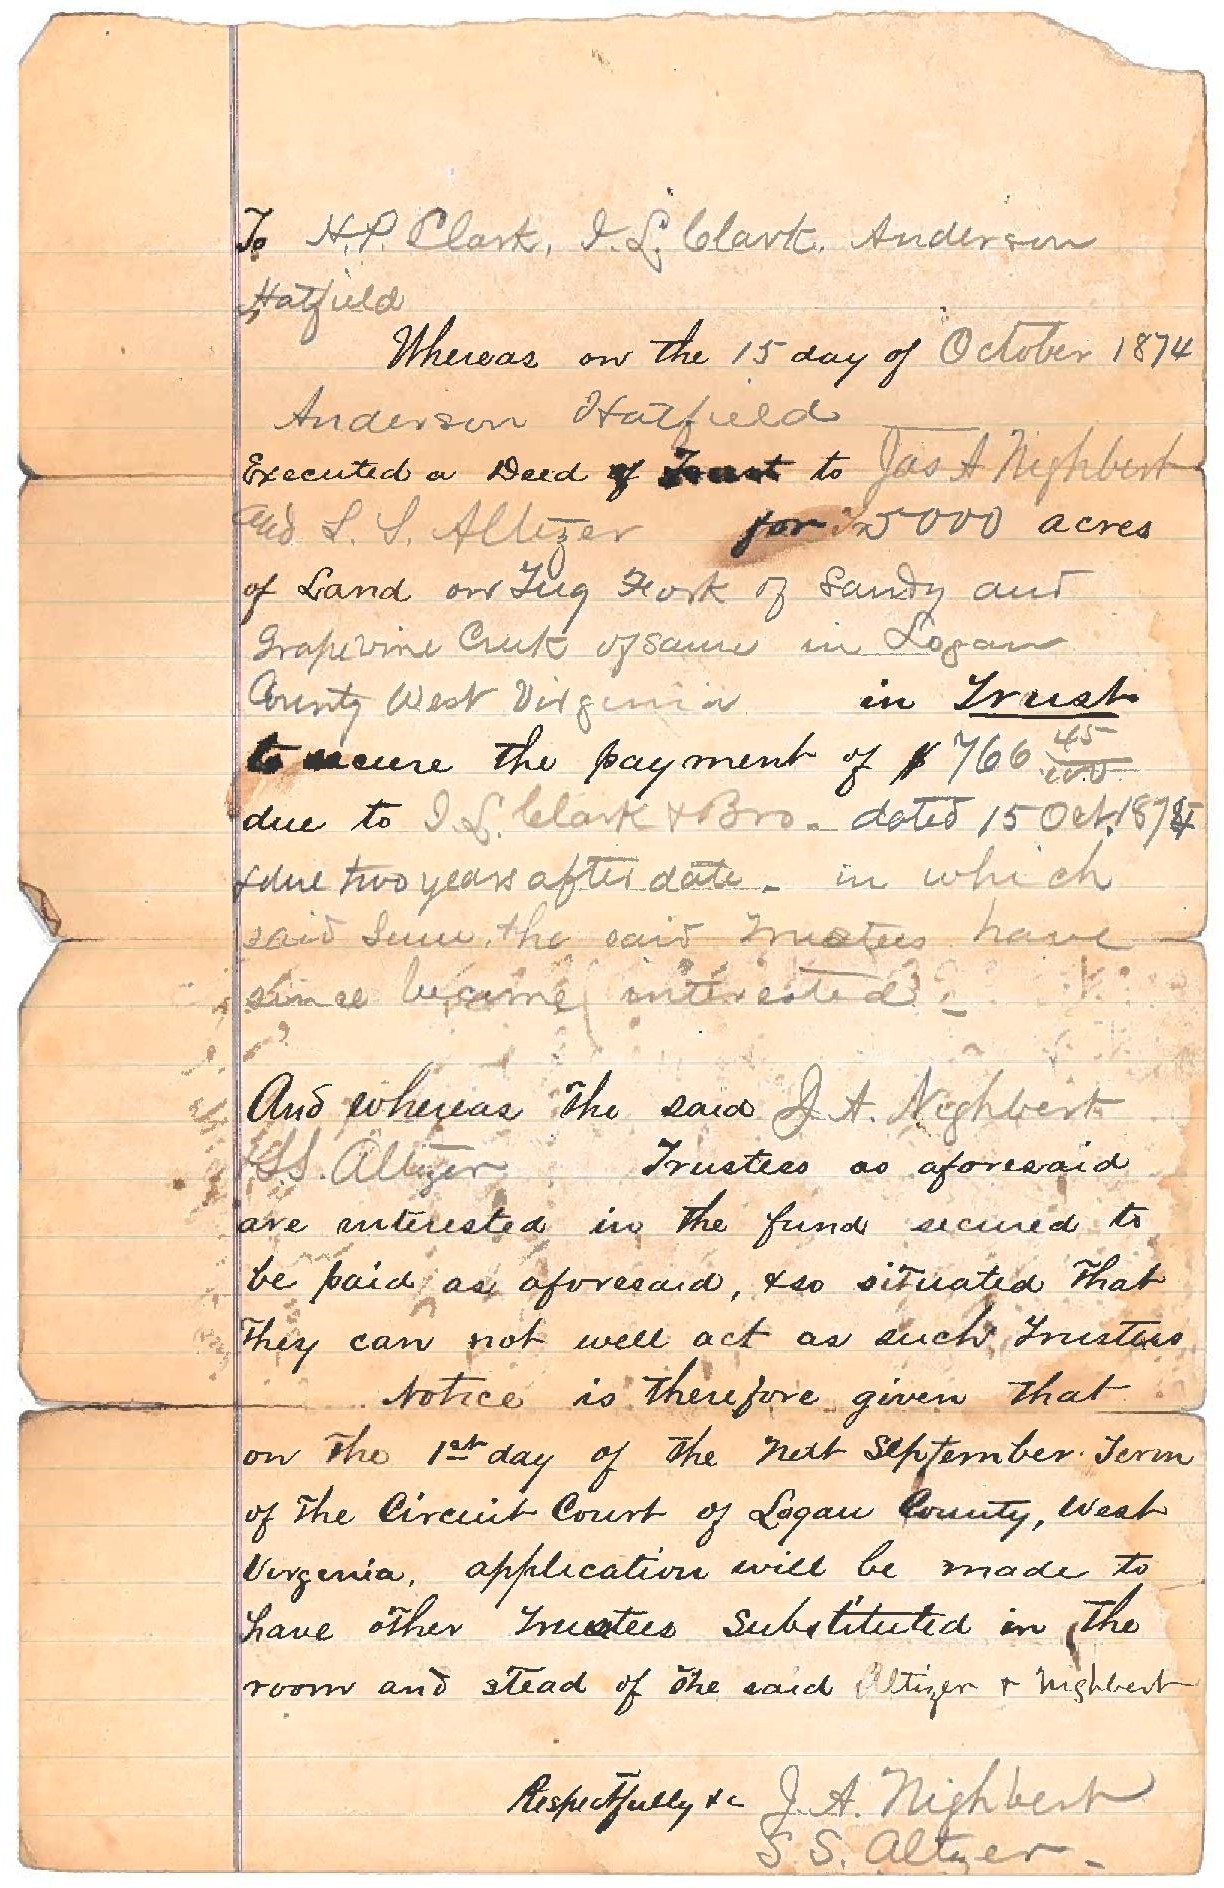 To H.P. Clark, I. L. Clark, Anderson
Hatfield
Whereas on the 15 day of October 1874
Anderson Hatfield
Executed a Deed of Trust to Jas A Nighbert
and S. S. Altizer for 5000 acres
of Land on Tug Fork of Sandy and
Grapevine Creek of same in Logan
County West Virginia in Trust
to secure the payment of $766 45/100
due to I. L. Clark & Bro. dated 15 Oct. 1874
& due two years after date - in which
said sum, the said Trustees have
since become interested -
And whereas the said J. A. Nighbert
& S.S. Altizer Trustees as aforesaid
are interested in the fund secured to
be paid as aforesaid, & so situated that
they can not well act as such Trustees
Notice is therefore given that
on the 1st day of the next September Term
of the Circuit Court of Logan County, West
Virginia, application will be made to
have other Trustees Substituted in the
room and stead of the said Altizer & Nighbert
Respectfully &c J. A. Nighbert
S S. Altizer -